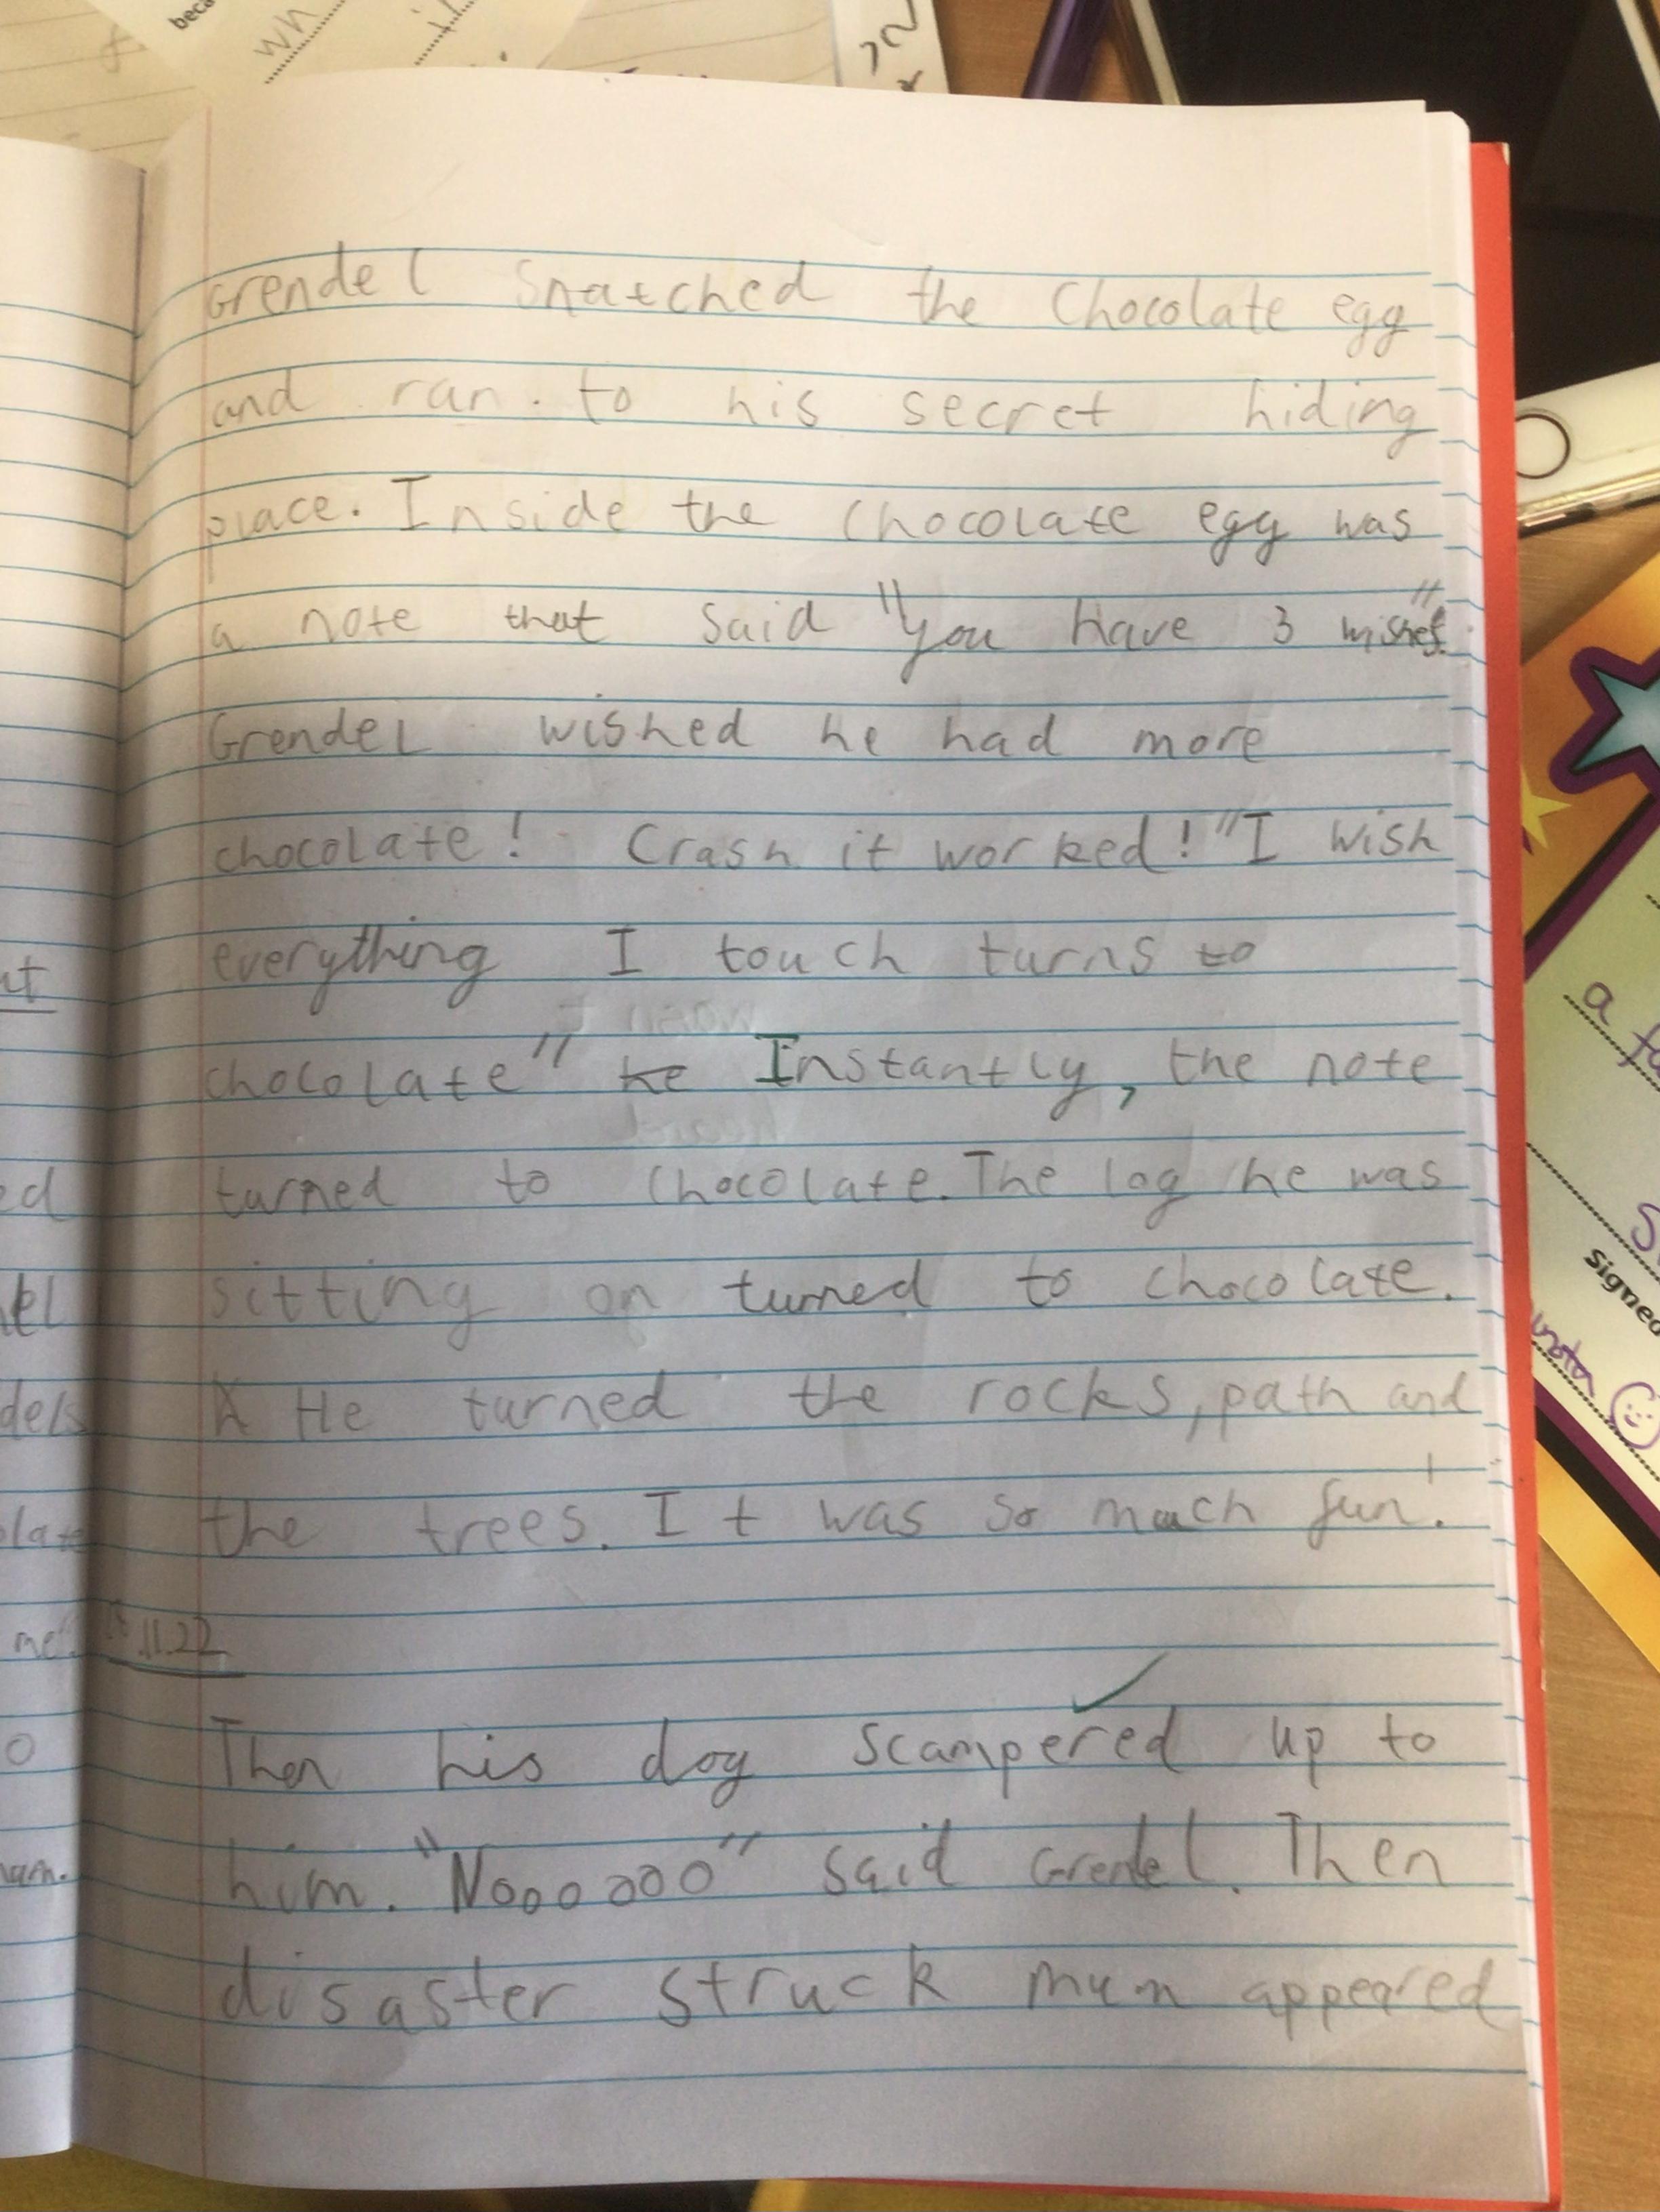 beca
wh
Grendel Snatched the Chocolate egg
and ran. to his secret hiding
place. Inside the chocolate egg was
a note that said "you have 3 wishes."
Grendel wished he had more
chocolate! Crash it worked! "I wish
everything I touch turns to
chocolate" he Instantly, the note
turned to chocolate. The log he was
sitting on turned to chocolate.
He turned the rocks, path and
the trees. It was so much fun!
.11.22
Then his dog scampered up to
him. "Noooooo" said Grendel. Then
disaster struck mum appeared
ed
dels
me
a
Signed